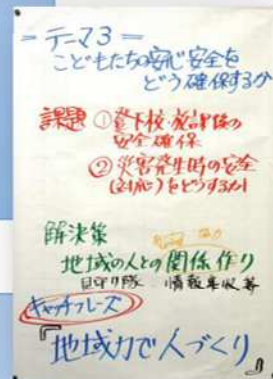 =テーマ3=
こどもたちの安心安全を
どう確保するか
課題 ①登下校・放課後の
安全確保
②災害発生時の安全
(対応)をどうするか
解決策
協力
地域の人との関係作り
見守り隊 情報集収等
キャッチフレーズ
『地域力で人づくり』